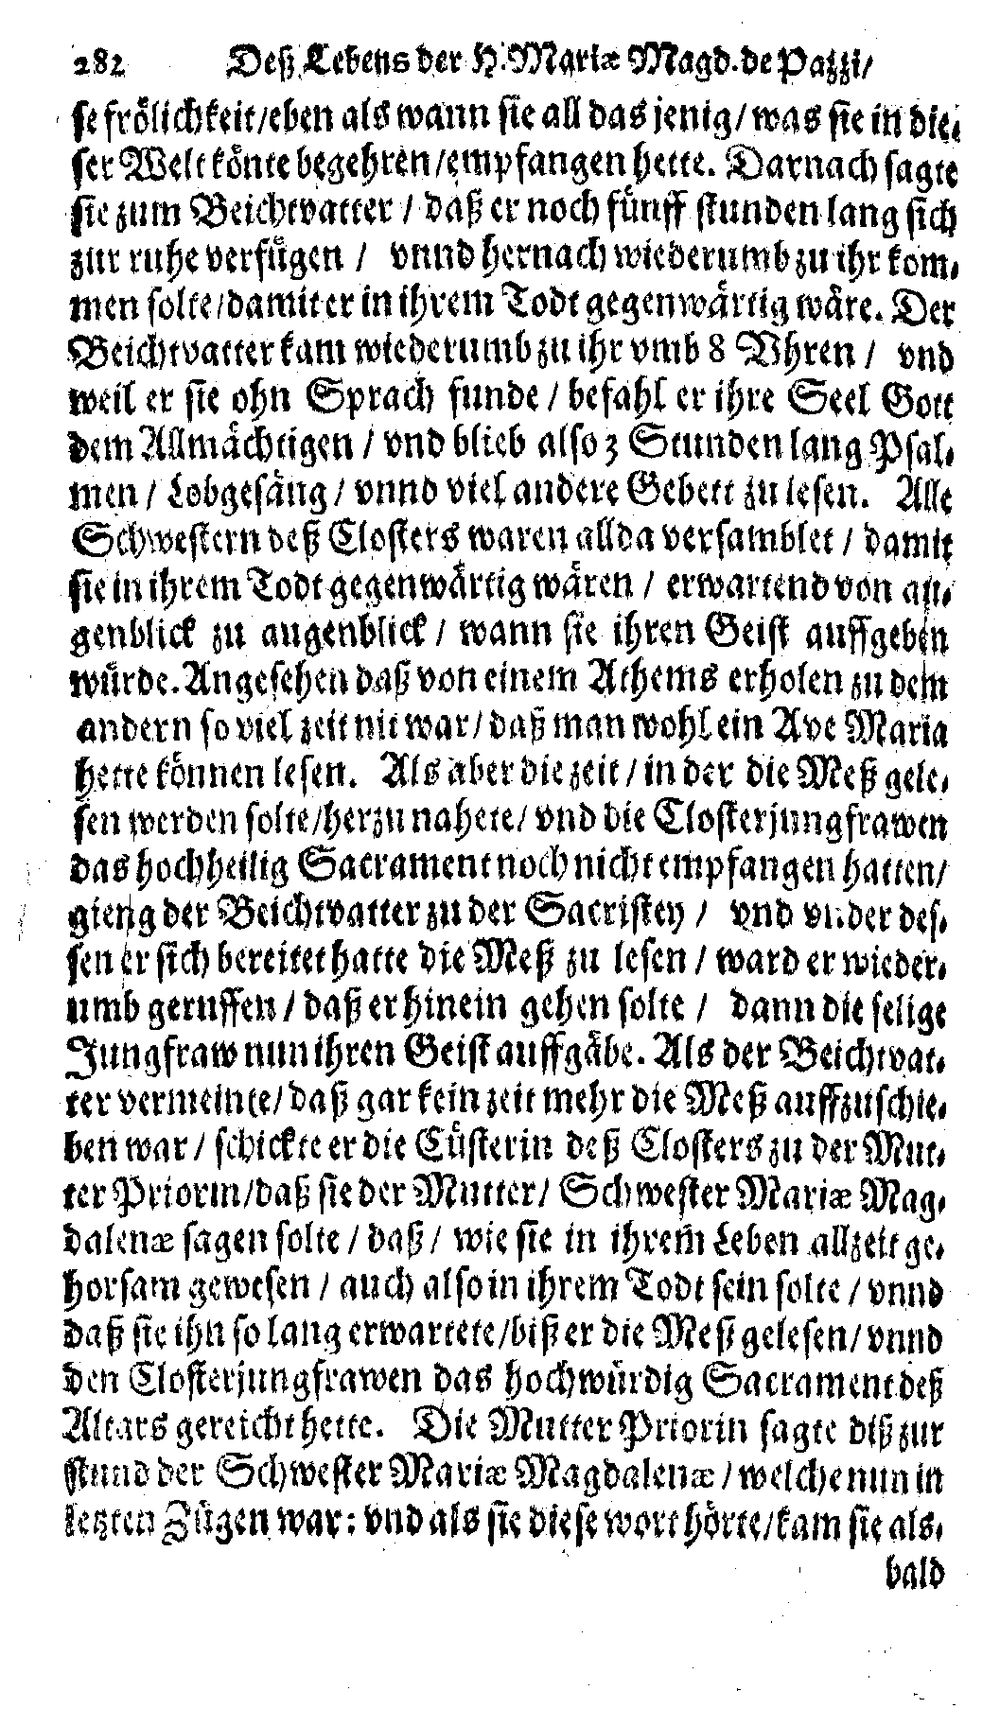 282 Deß Lebens der H. Mariæ Magd. de Pazzi/
se frölichkeit/eben als wann sie all das jenig/ was sie in die-
ser Welt könte begehren/empfangen hette. Darnach sagte
sie zum Beichtvatter / daß er noch fünff stunden lang sich
zur ruhe verfügen / vnnd hernach wiederumb zu ihr kom-
men solte/damit er in ihrem Todt gegenwärtig wäre. Der
Beichtvatter kam wiederumb zu ihr vmb 8 Vhren / vnd
weil er sie ohn Sprach funde / befahl er ihre Seel Gott
dem Allmächtigen / vnd blieb also 3 Stunden lang Psal-
men / Lobgesäng / vnnd viel andere Gebett zu lesen. Alle
Schwestern deß Closters waren allda versamblet / damit
sie in ihrem Todt gegenwärtig wären / erwartend von au-
genblick zu augenblick / wann sie ihren Geist auffgeben
würde. Angesehen daß von einem Athems erholen zu dem
andern so viel zeit nit war/ daß man wohl ein Ave Maria
hette können lesen. Als aber die zeit / in der die Meß gele-
sen werden solte/herzu nahete/ vnd die Closterjungfrawen
das hochheilig Sacrament noch nicht empfangen hatten/
gieng der Beichtvatter zu der Sacristey / vnd vnder des-
sen er sich bereitet hatte die Meß zu lesen / ward er wieder-
umb geruffen / daß er hinein gehen solte / dann die selige
Jungfraw nun ihren Geist auffgäbe. Als der Beichtvat-
ter vermeinte/ daß gar kein zeit mehr die Meß auffzuschie-
ben war / schickte er die Cüsterin deß Closters zu der Mut-
ter Priorin/daß sie der Mutter/ Schwester Mariæ Mag-
dalenæ sagen solte / daß/ wie sie in ihrem Leben allzeit ge-
horsam gewesen / auch also in ihrem Todt sein solte / vnnd
daß sie ihn so lang erwartete/biß er die Meß gelesen/ vnnd
den Closterjungfrawen das hochwürdig Sacrament deß
Altars gereicht hette. Die Mutter Priorin sagte diß zur
stund der Schwester Mariæ Magdalenæ / welche nun in
letzten Zügen war: vnd als sie diese wort hörte/kam sie als-
bald